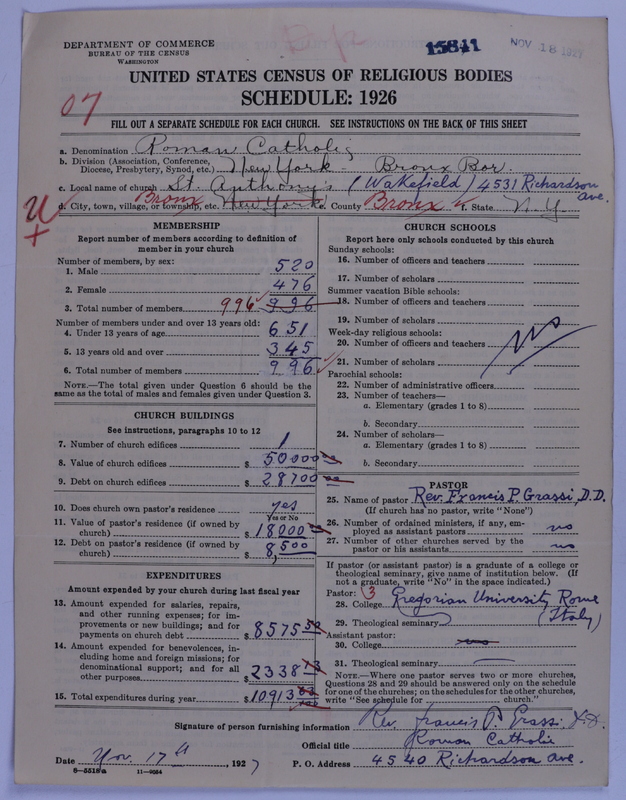 DEPARTMENT OF COMMERCE
BUREAU OF THE CENSUS
WASHINGTON
15841
NOV 18 1927
UNITED STATES CENSUS OF RELIGIOUS BODIES
SCHEDULE: 1926
07
FILL OUT A SEPARATE SCHEDULE FOR EACH CHURCH. SEE INSTRUCTIONS ON THE BACK OF THIS SHEET
a. Denomination Roman Catholic
b. Division (Association, Conference, Diocese, Presbytery, Synod, etc.) New York - Bronx Bor.
c. Local name of church St. Anthony's (Wakefield) 4531 Richardson ave.
d. City, town, village, or township, etc. Bronx New York e. County Bronx f. State N.Y.
MEMBERSHIP
Report number of members according to definition of member in your church
Number of members, by sex:
1. Male 520
2. Female 476
3. Total number of members 996 996
Number of members under and over 13 years old:
4. Under 13 years of age 651
5. 13 years old and over 345
6. Total number of members 996
NOTE.—The total given under Question 6 should be the same as the total of males and females given under Question 3.
CHURCH BUILDINGS
See instructions, paragraphs 10 to 12
7. Number of church edifices 1
8. Value of church edifices $ 50000 00
9. Debt on church edifices $ 28700 00
10. Does church own pastor's residence? yes
Yes or No
11. Value of pastor's residence (if owned by church) $ 18000 00
12. Debt on pastor's residence (if owned by church) $ 8,500
EXPENDITURES
Amount expended by your church during last fiscal year
13. Amount expended for salaries, repairs, and other running expenses; for improvements or new buildings; and for payments on church debt $ 8575 52
14. Amount expended for benevolences, including home and foreign missions; for denominational support; and for all other purposes $ 2338 13
15. Total expenditures during year $ 10913
CHURCH SCHOOLS
Report here only schools conducted by this church
Sunday schools:
16. Number of officers and teachers
17. Number of scholars
Summer vacation Bible schools:
18. Number of officers and teachers
19. Number of scholars
Week-day religious schools:
20. Number of officers and teachers
21. Number of scholars
no
Parochial schools:
22. Number of administrative officers
23. Number of teachers—
a. Elementary (grades 1 to 8)
b. Secondary
24. Number of scholars—
a. Elementary (grades 1 to 8)
b. Secondary
PASTOR
25. Name of pastor Rev. Francis P. Grassi, D.D.
(If church has no pastor, write "None")
26. Number of ordained ministers, if any, employed as assistant pastors no
27. Number of other churches served by the pastor or his assistants no
If pastor (or assistant pastor) is a graduate of a college or theological seminary, give name of institution below. (If not a graduate, write "No" in the space indicated.)
Pastor: 3
28. College Gregorian University Rome (Italy)
29. Theological seminary
Assistant pastor:
30. College
31. Theological seminary
NOTE.—Where one pastor serves two or more churches, Questions 28 and 29 should be answered only on the schedule for one of the churches; on the schedules for the other churches, write "See schedule for church."
Signature of person furnishing information Rev. Francis P. Grassi D.D.
Official title Roman Catholic
Date Nov. 17th, 1927
P. O. Address 4540 Richardson ave.
6-5518a 11-9084